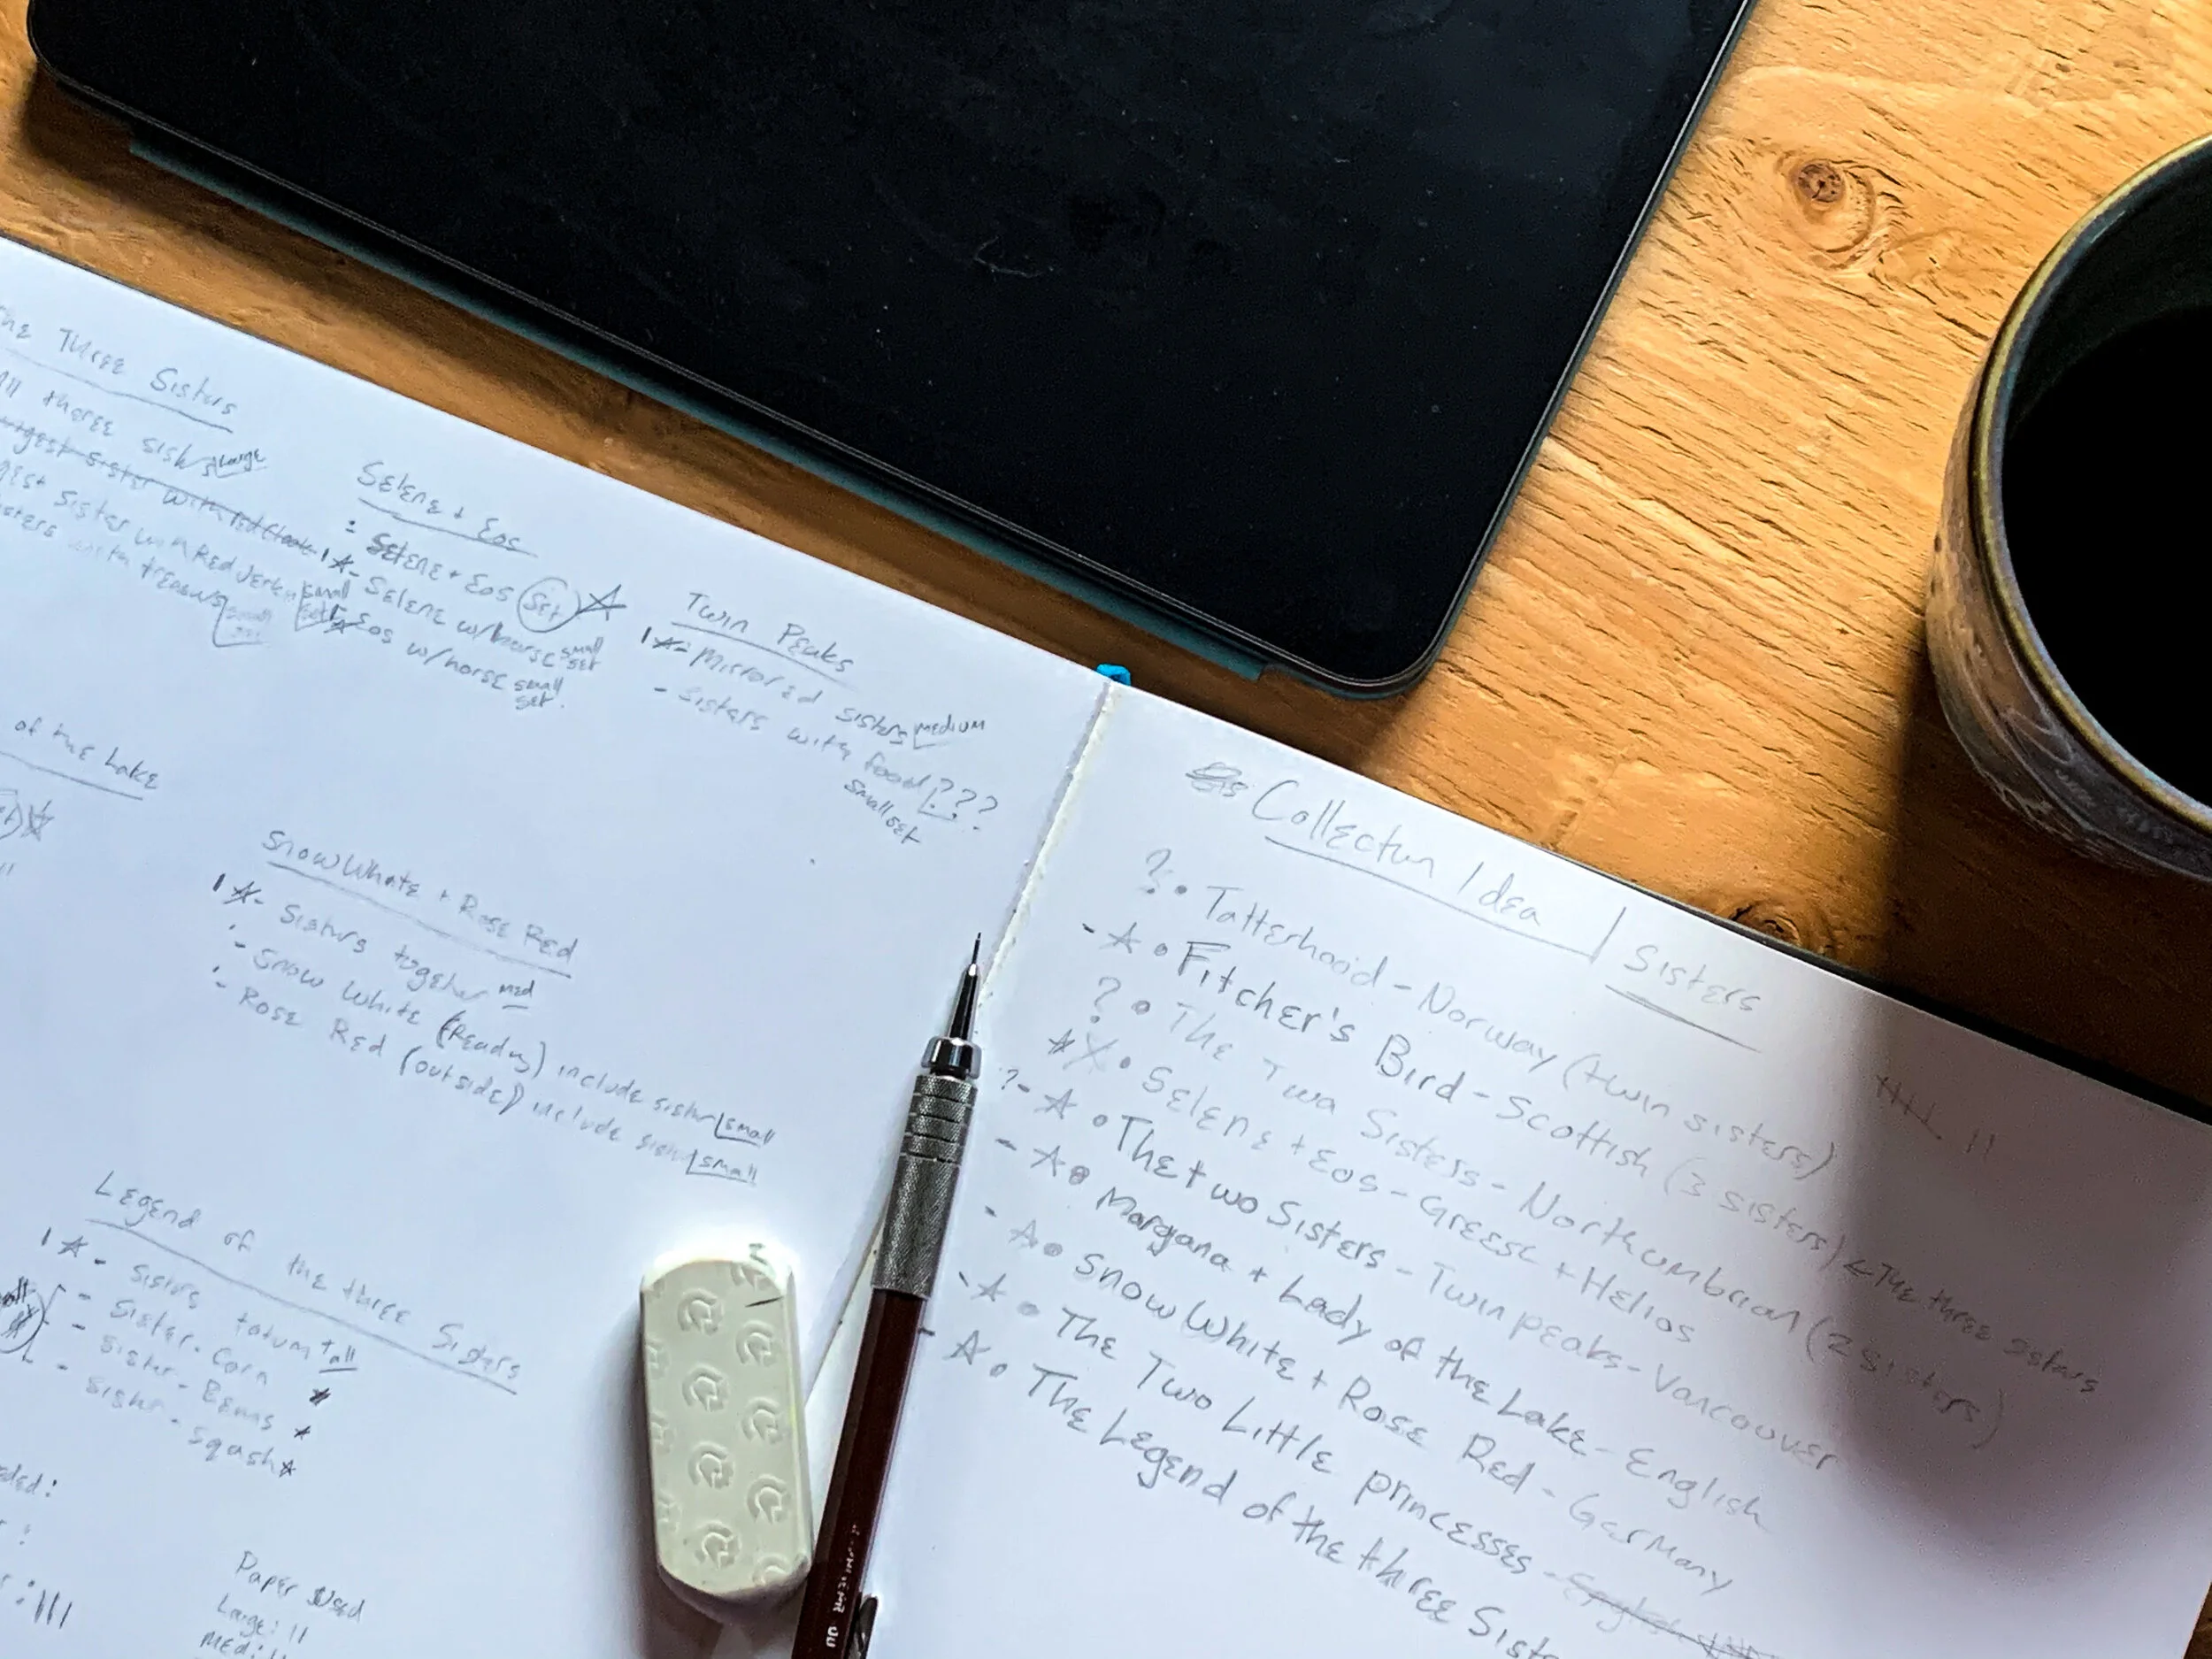 The Three Sisters
All thoree sisters Large
sister with red cloak
sister with Red
sisters with small set
Selene + Eos
- Selene + Eos Set
1 - Selene w/horse small set
- Eos w/horse small set.
Twin Peaks
1 - Mirrored sisters medium
- Sisters with food ???
small set
of the Lake
Snow White + Rose Red
1 - Sisters together med
- Snow White (Reading) include sister small
- Rose Red (outside) include sister small
Legend of the three Sisters
1 - Sisters totum tall
- Sister - Corn
- Sister - Beans
- Sister - Sqash
Paper Used
Large: 11
Med:
Collection Idea | Sisters
? • Tatterhood - Norway (twin sisters)
- • Fitcher's Bird - Scottish (3 sisters) < The three sisters
? • The Twa Sisters - Northumbrian (2 sisters)
X • Selene + Eos - Greese + Helios
? - • The two Sisters - Twin peaks - Vancouver
- • Morgana + Lady of the Lake - English
- • Snow White + Rose Red - Germany
- • The Two Little princesses -
- • The Legend of the three